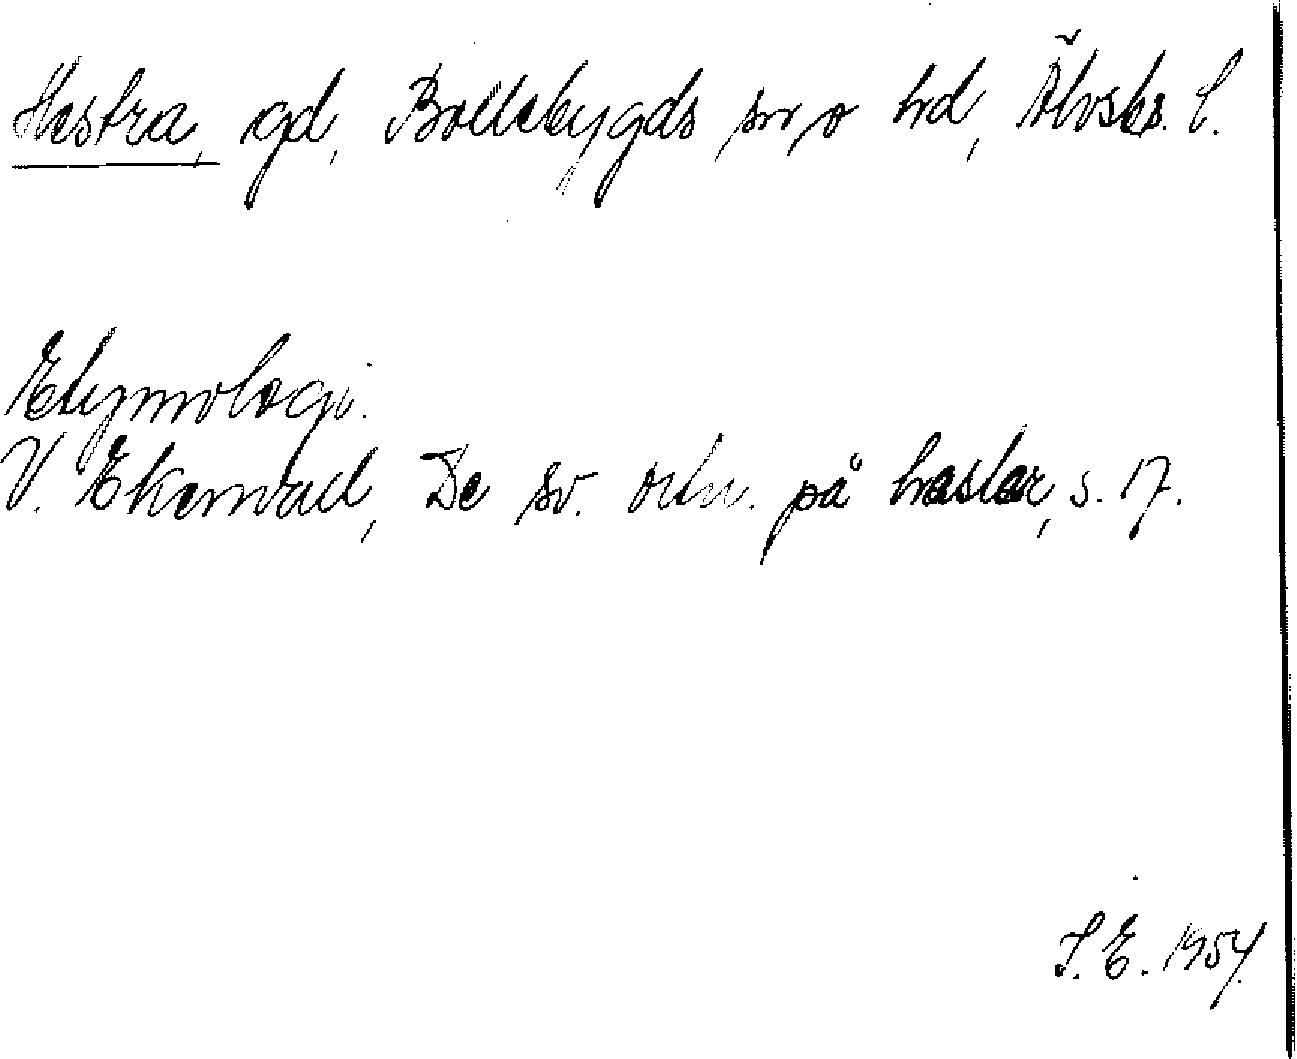 Hestra, gd, Bollebygds sn o hd, Älvsbs. l.
Etymologi.
V. Ekenvall, De sv. ortn. på hester, s. 17.
S. E. 1954.